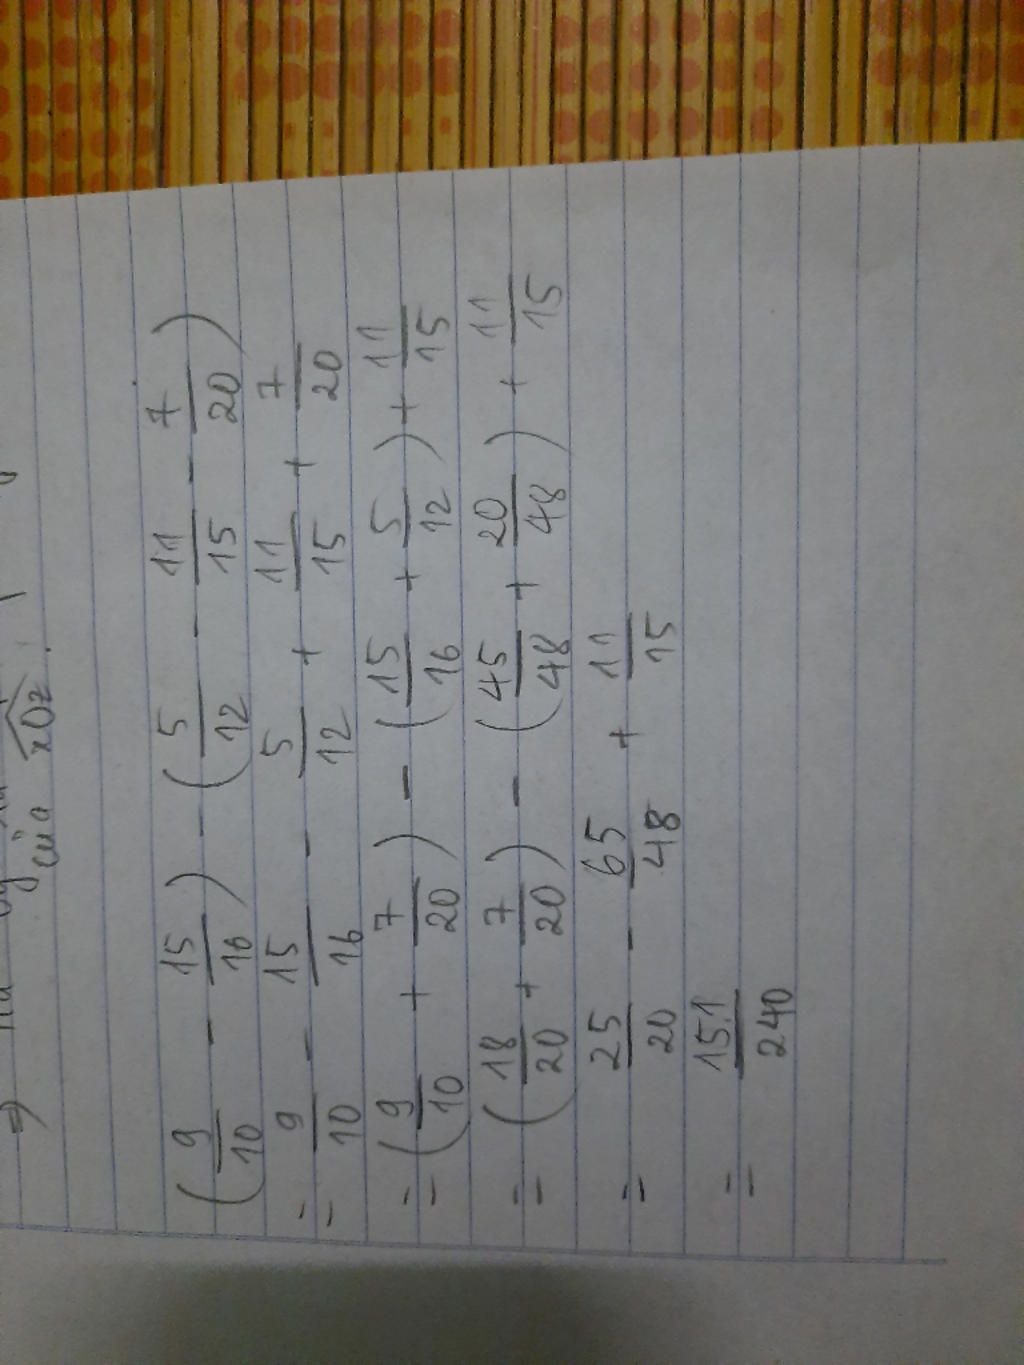 ⇒
của x̂Oz.
(9/10 - 15/16) - (5/12 - 11/15 - 7/20)
= 9/10 - 15/16 - 5/12 + 11/15 + 7/20
= (9/10 + 7/20) - (15/16 + 5/12) + 11/15
= (18/20 + 7/20) - (45/48 + 20/48) + 11/15
= 25/20 - 65/48 + 11/15
= 151/240